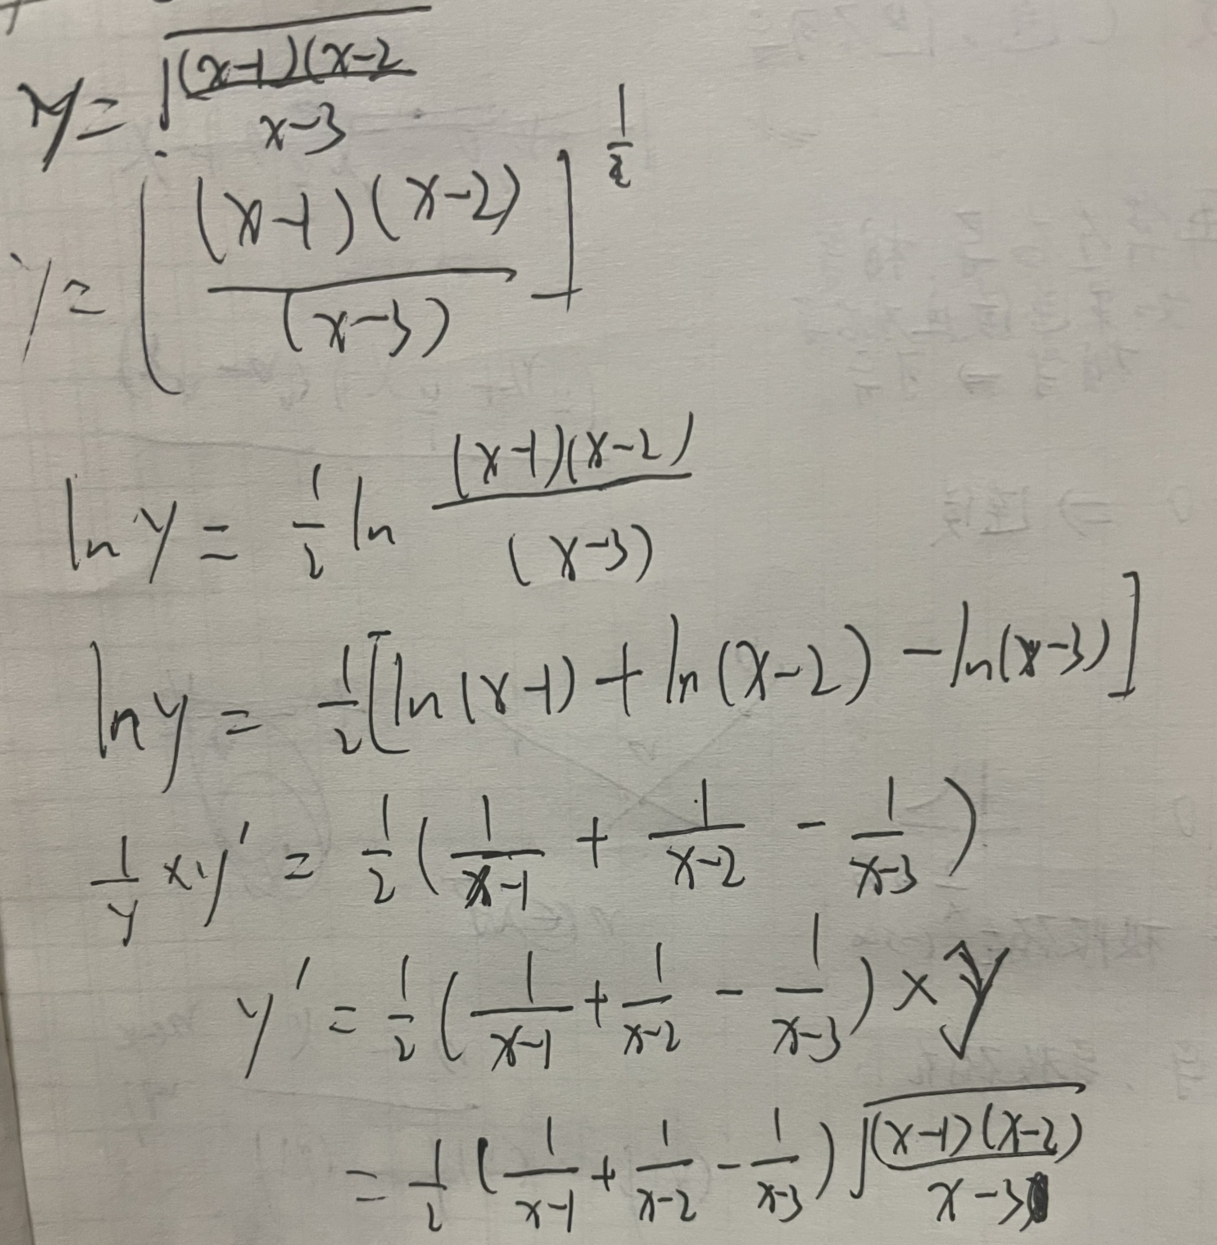 y = √((x-1)(x-2 / x-3)
y = [(x-1)(x-2) / (x-3)]^(1/2)
ln y = 1/2 ln (x-1)(x-2) / (x-3)
ln y = 1/2 [ln(x-1) + ln(x-2) - ln(x-3)]
1/y × y' = 1/2 (1/(x-1) + 1/(x-2) - 1/(x-3))
y' = 1/2 (1/(x-1) + 1/(x-2) - 1/(x-3)) × y
= 1/2 (1/(x-1) + 1/(x-2) - 1/(x-3)) √((x-1)(x-2) / x-3)